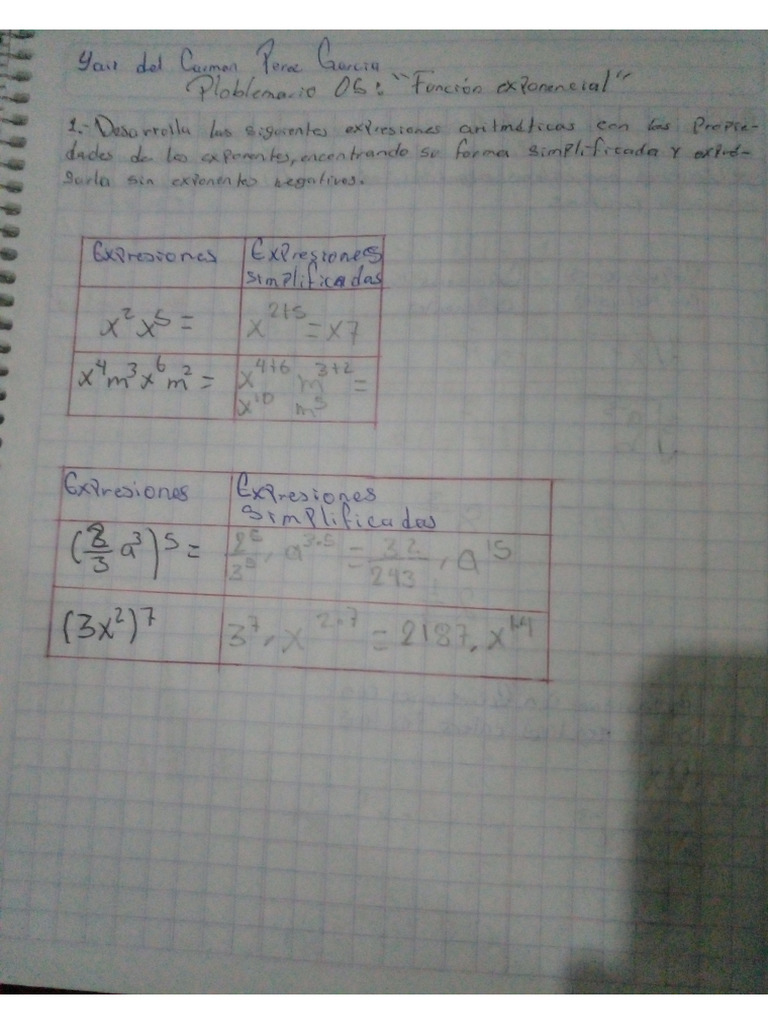 Yair del Carmen Perez Garcia
Ploblemario 06: "Función exponencial"
1.- Desarrolla las siguientes expresiones aritméticas con las Propie-
dades de los exponentes, encontrando su forma simplificada y expré-
sarla sin exponentes negativos.
Expresiones Expresiones simplificadas
x²x⁵ = x²⁺⁵ = x7
x⁴m³x⁶m² = x⁴⁺⁶ m³⁺² =
x¹⁰ m⁵
Expresiones Expresiones simplificadas
(2/3 a³)⁵ = 2⁵/3⁵ · a³·⁵ = 32/243 · a¹⁵
(3x²)⁷ 3⁷ · x²·⁷ = 2187 · x¹⁴